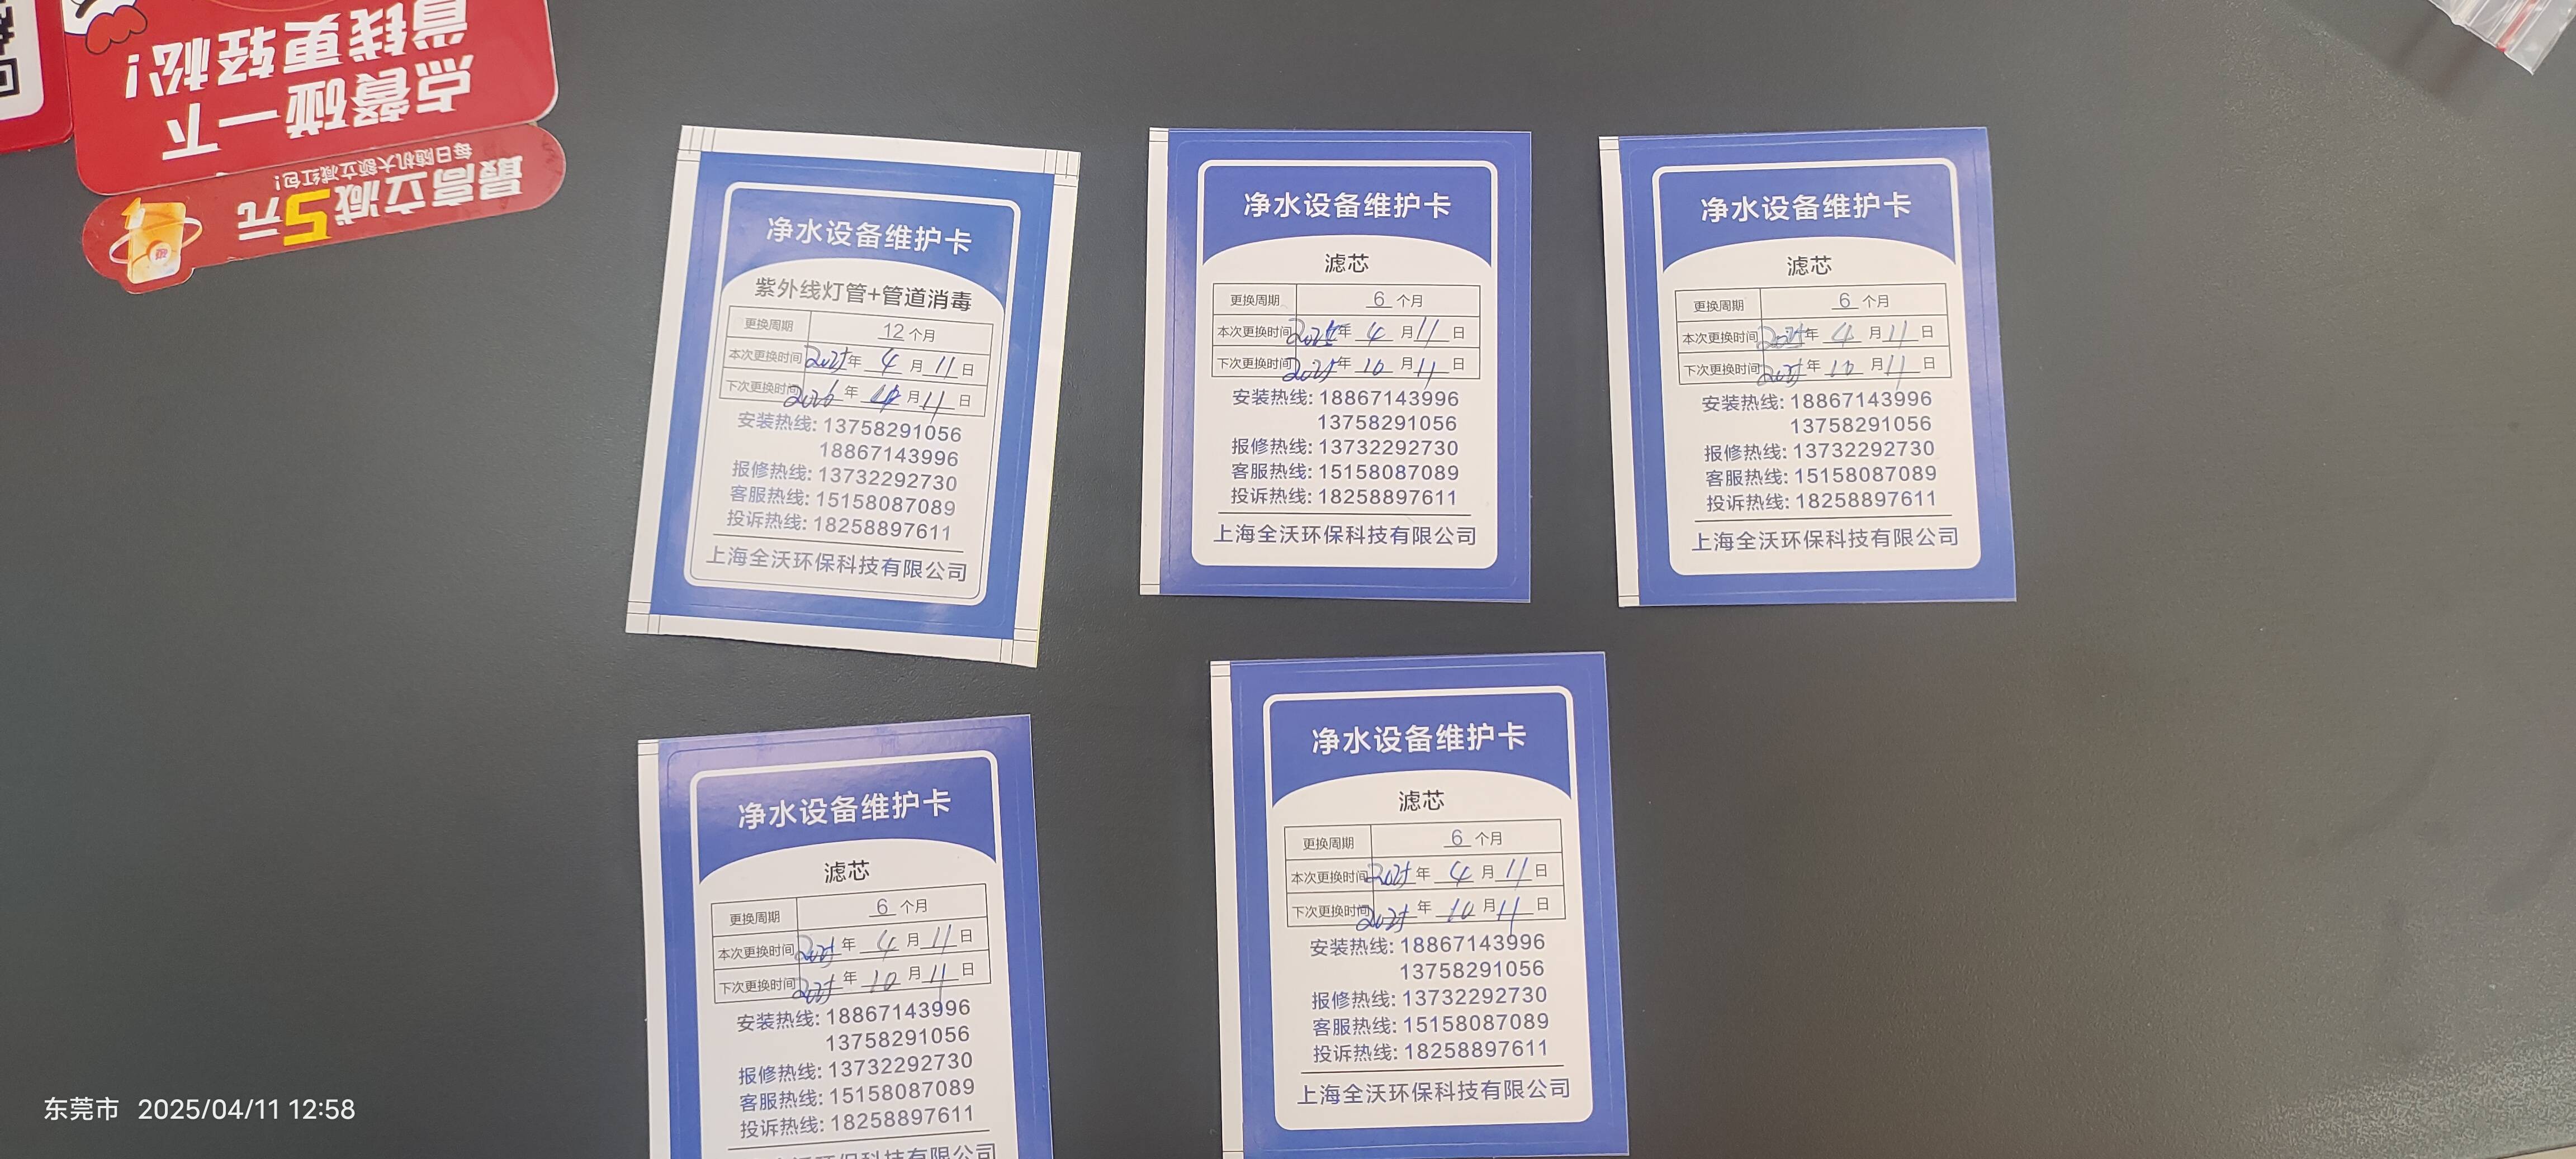 省钱更轻松！
点餐碰一下
每日随机大额立减红包！
最高立减5元
净水设备维护卡
紫外线灯管+管道消毒
更换周期 12 个月
本次更换时间 2025 年 4 月 11 日
下次更换时间 2026 年 4 月 11 日
安装热线: 13758291056
18867143996
报修热线: 13732292730
客服热线: 15158087089
投诉热线: 18258897611
上海全沃环保科技有限公司
净水设备维护卡
滤芯
更换周期 6 个月
本次更换时间 2025 年 4 月 11 日
下次更换时间 2025 年 10 月 11 日
安装热线: 18867143996
13758291056
报修热线: 13732292730
客服热线: 15158087089
投诉热线: 18258897611
上海全沃环保科技有限公司
净水设备维护卡
滤芯
更换周期 6 个月
本次更换时间 2025 年 4 月 11 日
下次更换时间 2025 年 10 月 11 日
安装热线: 18867143996
13758291056
报修热线: 13732292730
客服热线: 15158087089
投诉热线: 18258897611
上海全沃环保科技有限公司
净水设备维护卡
滤芯
更换周期 6 个月
本次更换时间 2025 年 4 月 11 日
下次更换时间 2025 年 10 月 11 日
安装热线: 18867143996
13758291056
报修热线: 13732292730
客服热线: 15158087089
投诉热线: 18258897611
环保科技有限公司
净水设备维护卡
滤芯
更换周期 6 个月
本次更换时间 2025 年 4 月 11 日
下次更换时间 2025 年 10 月 11 日
安装热线: 18867143996
13758291056
报修热线: 13732292730
客服热线: 15158087089
投诉热线: 18258897611
上海全沃环保科技有限公司
东莞市 2025/04/11 12:58